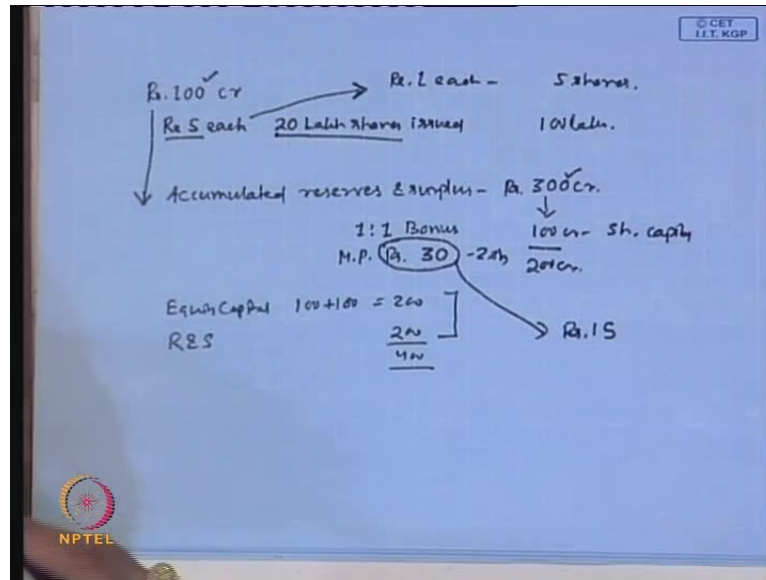 © CET
I.I.T. KGP
Rs. 100 cr
Re. 1 each - 5 shares.
Rs 5 each 20 Lakh shares issued 100 lakh.
Accumulated reserves & surplus - Rs. 300 cr.
1:1 Bonus 100 cr - Sh. capity
M.P. Rs. 30 - 2 sh 200 cr.
Equity Capital 100+100 = 200
R&S 200 Rs. 15
400
NPTEL